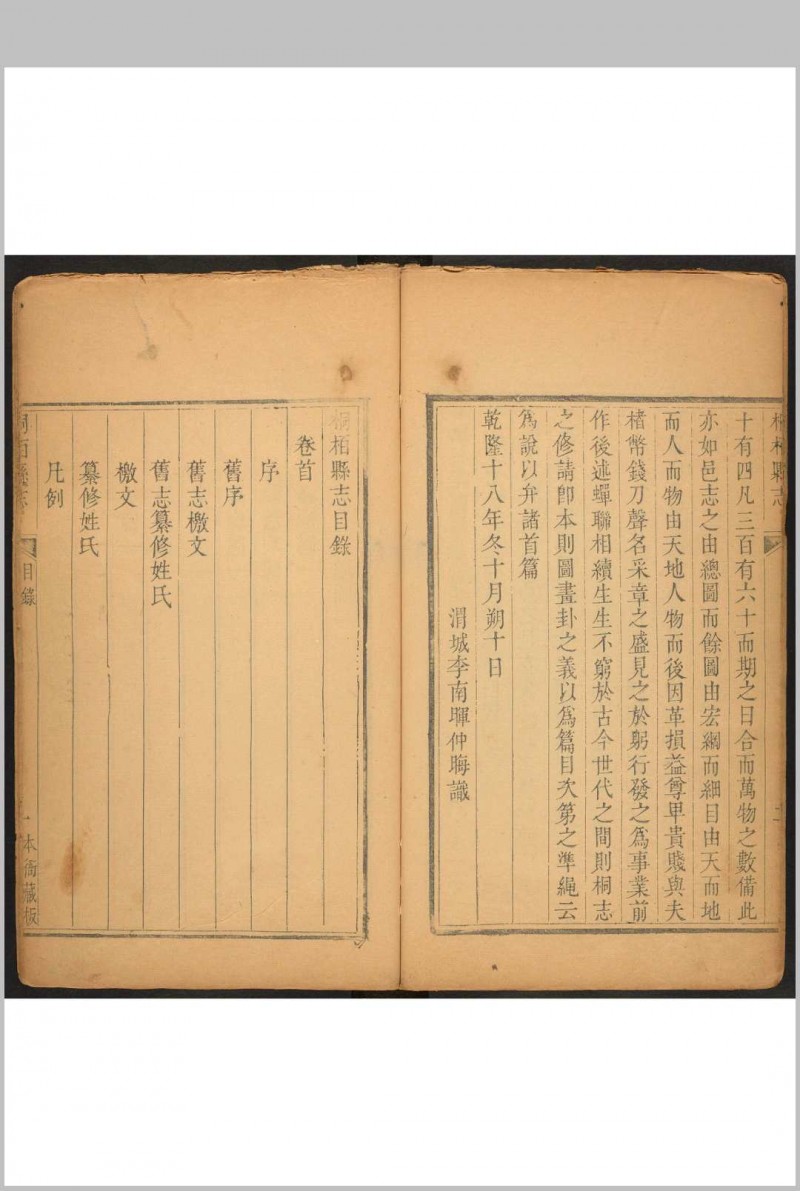 桐柏縣志
二
十有四凡三百有六十而期之日合而萬物之數備此
亦如邑志之由總圖而餘圖由宏綱而細目由天而地
而人而物由天地人物而後因革損益尊卑貴賤與夫
楮幣錢刀聲名采章之盛見之於躬行發之爲事業前
作後述蟬聯相續生生不窮於古今世代之間則桐志
之修請卽本則圖畫卦之義以爲篇目次第之準繩云
爲說以弁諸首篇
乾隆十八年冬十月朔十日
渭城李南暉仲晦識
桐柏縣志目錄
卷首
序
舊序
舊志檄文
舊志纂修姓氏
檄文
纂修姓氏
凡例
桐柏縣志
目錄
一
本衙藏板